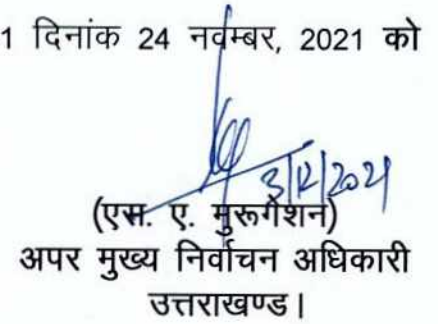 1 दिनांक 24 नवम्बर, 2021 को
3/12/2021
(एस. ए. मुरूगेशन)
अपर मुख्य निर्वाचन अधिकारी
उत्तराखण्ड।